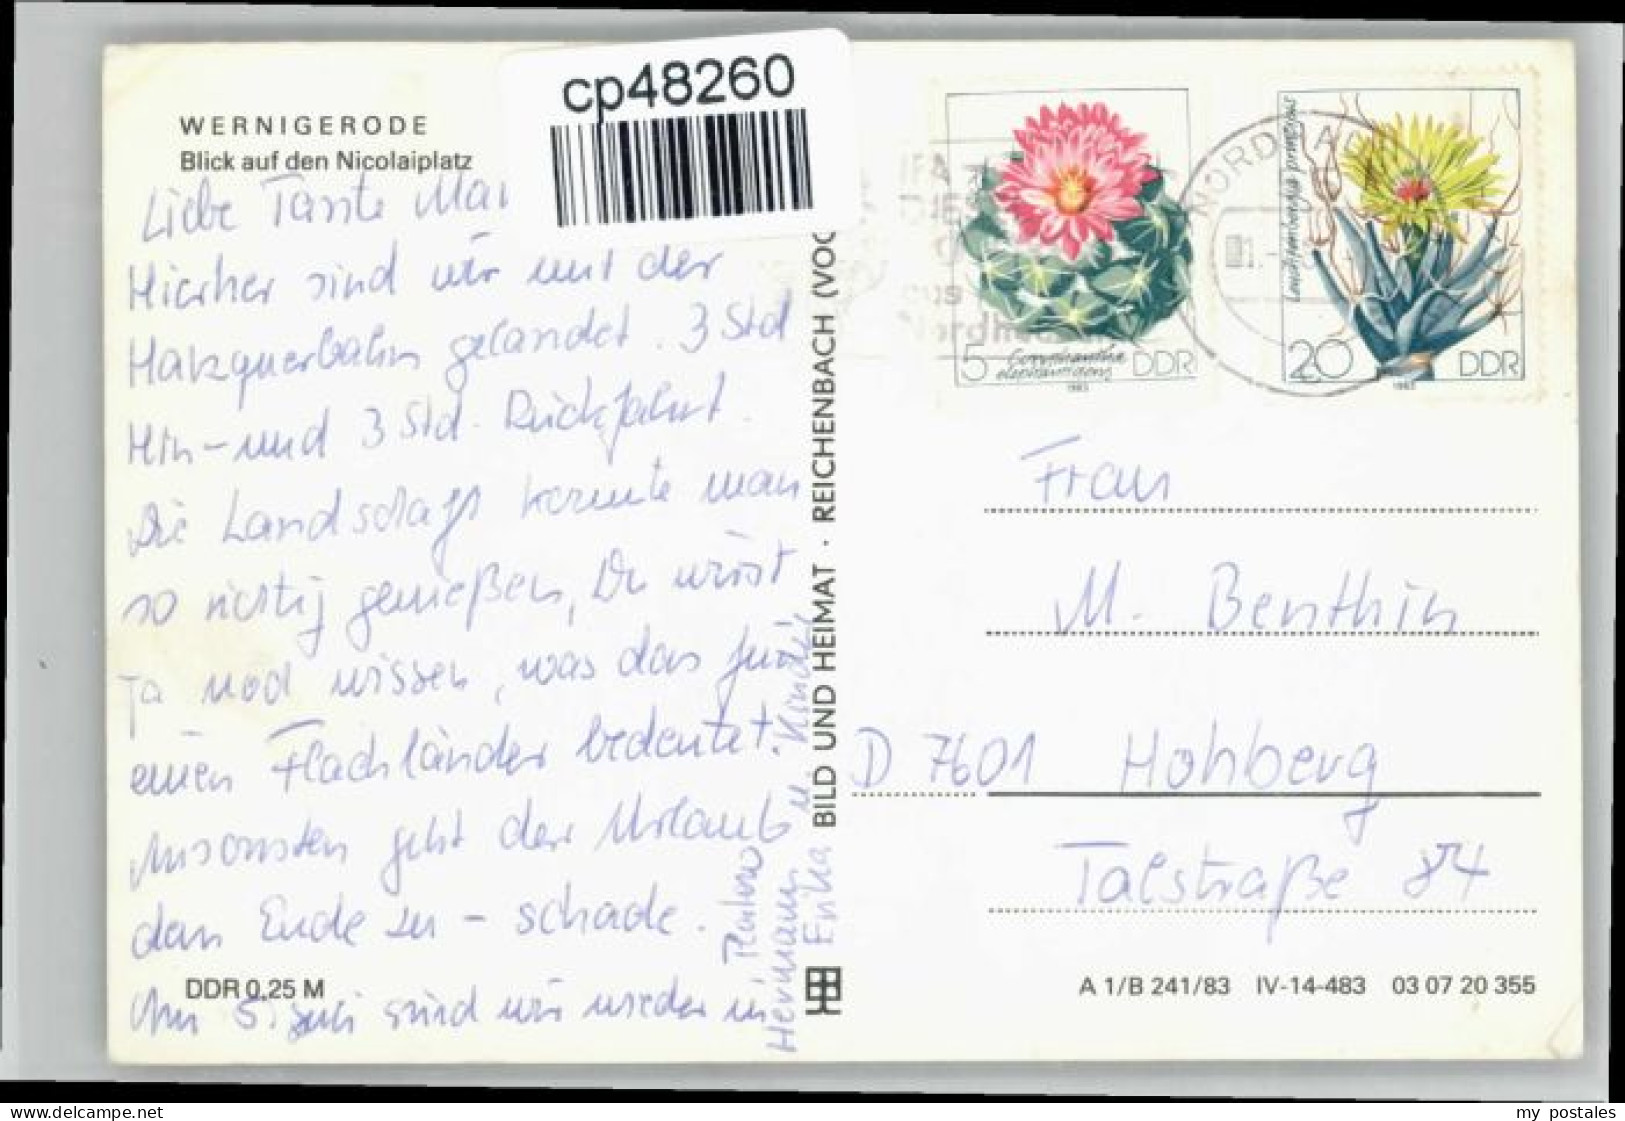 cp48260
WERNIGERODE
Blick auf den Nicolaiplatz
Liebe Tante
Hierher sind wir mit der
Harzquerbahn gelandet. 3 Std
Hin- und 3 Std. Rückfahrt.
Die Landschaft konnte man
so richtig genießen, Du wirst
ja noch wissen, was das für
einen Flachländer bedeutet.
Ansonsten geht der Urlaub
dem Ende zu - schade.
Am 5. Juli sind wir wieder in
Hermann
Erika u. Kinder
BILD UND HEIMAT · REICHENBACH (VOG
DDR 0,25 M
IFA
DIE
aus
5
DDR
1983
NORDHAU
20 DDR
1983
Frau
M. Benthin
D 7601 Hohberg
Talstraße 84
A 1/B 241/83 IV-14-483 03 07 20 355
www.delcampe.net
my_postales